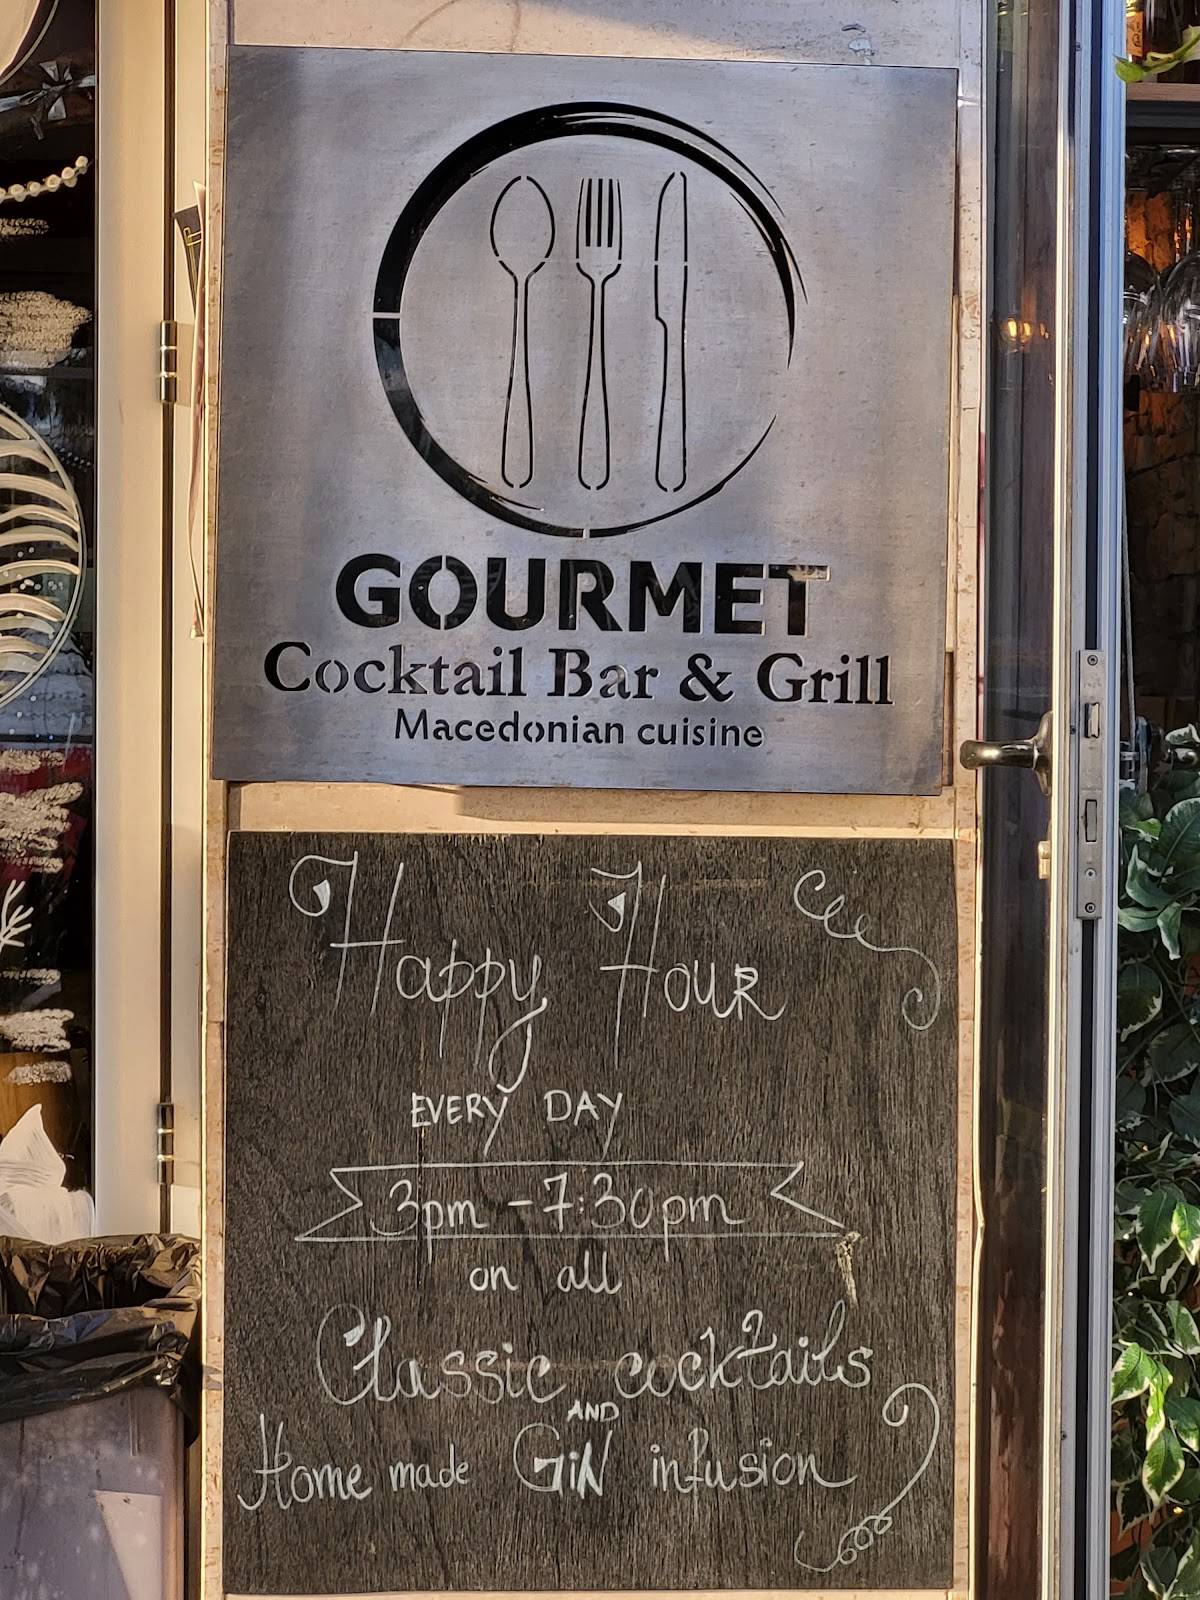 GOURMET
Cocktail Bar & Grill
Macedonian cuisine
Happy Hour
EVERY DAY
3pm - 7:30pm
on all
Classic cocktails
AND
Home made GiN infusion